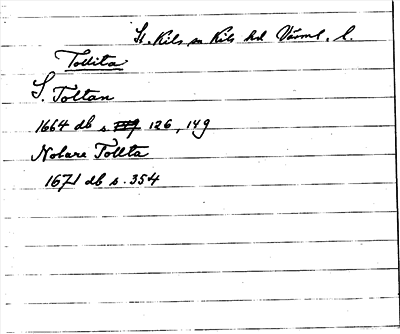 St. Kils sn Kils hd Värml. l.
Tolita
S. Toltan
1664 db s. 126, 149
Nolare Tollta
1671 db s. 354